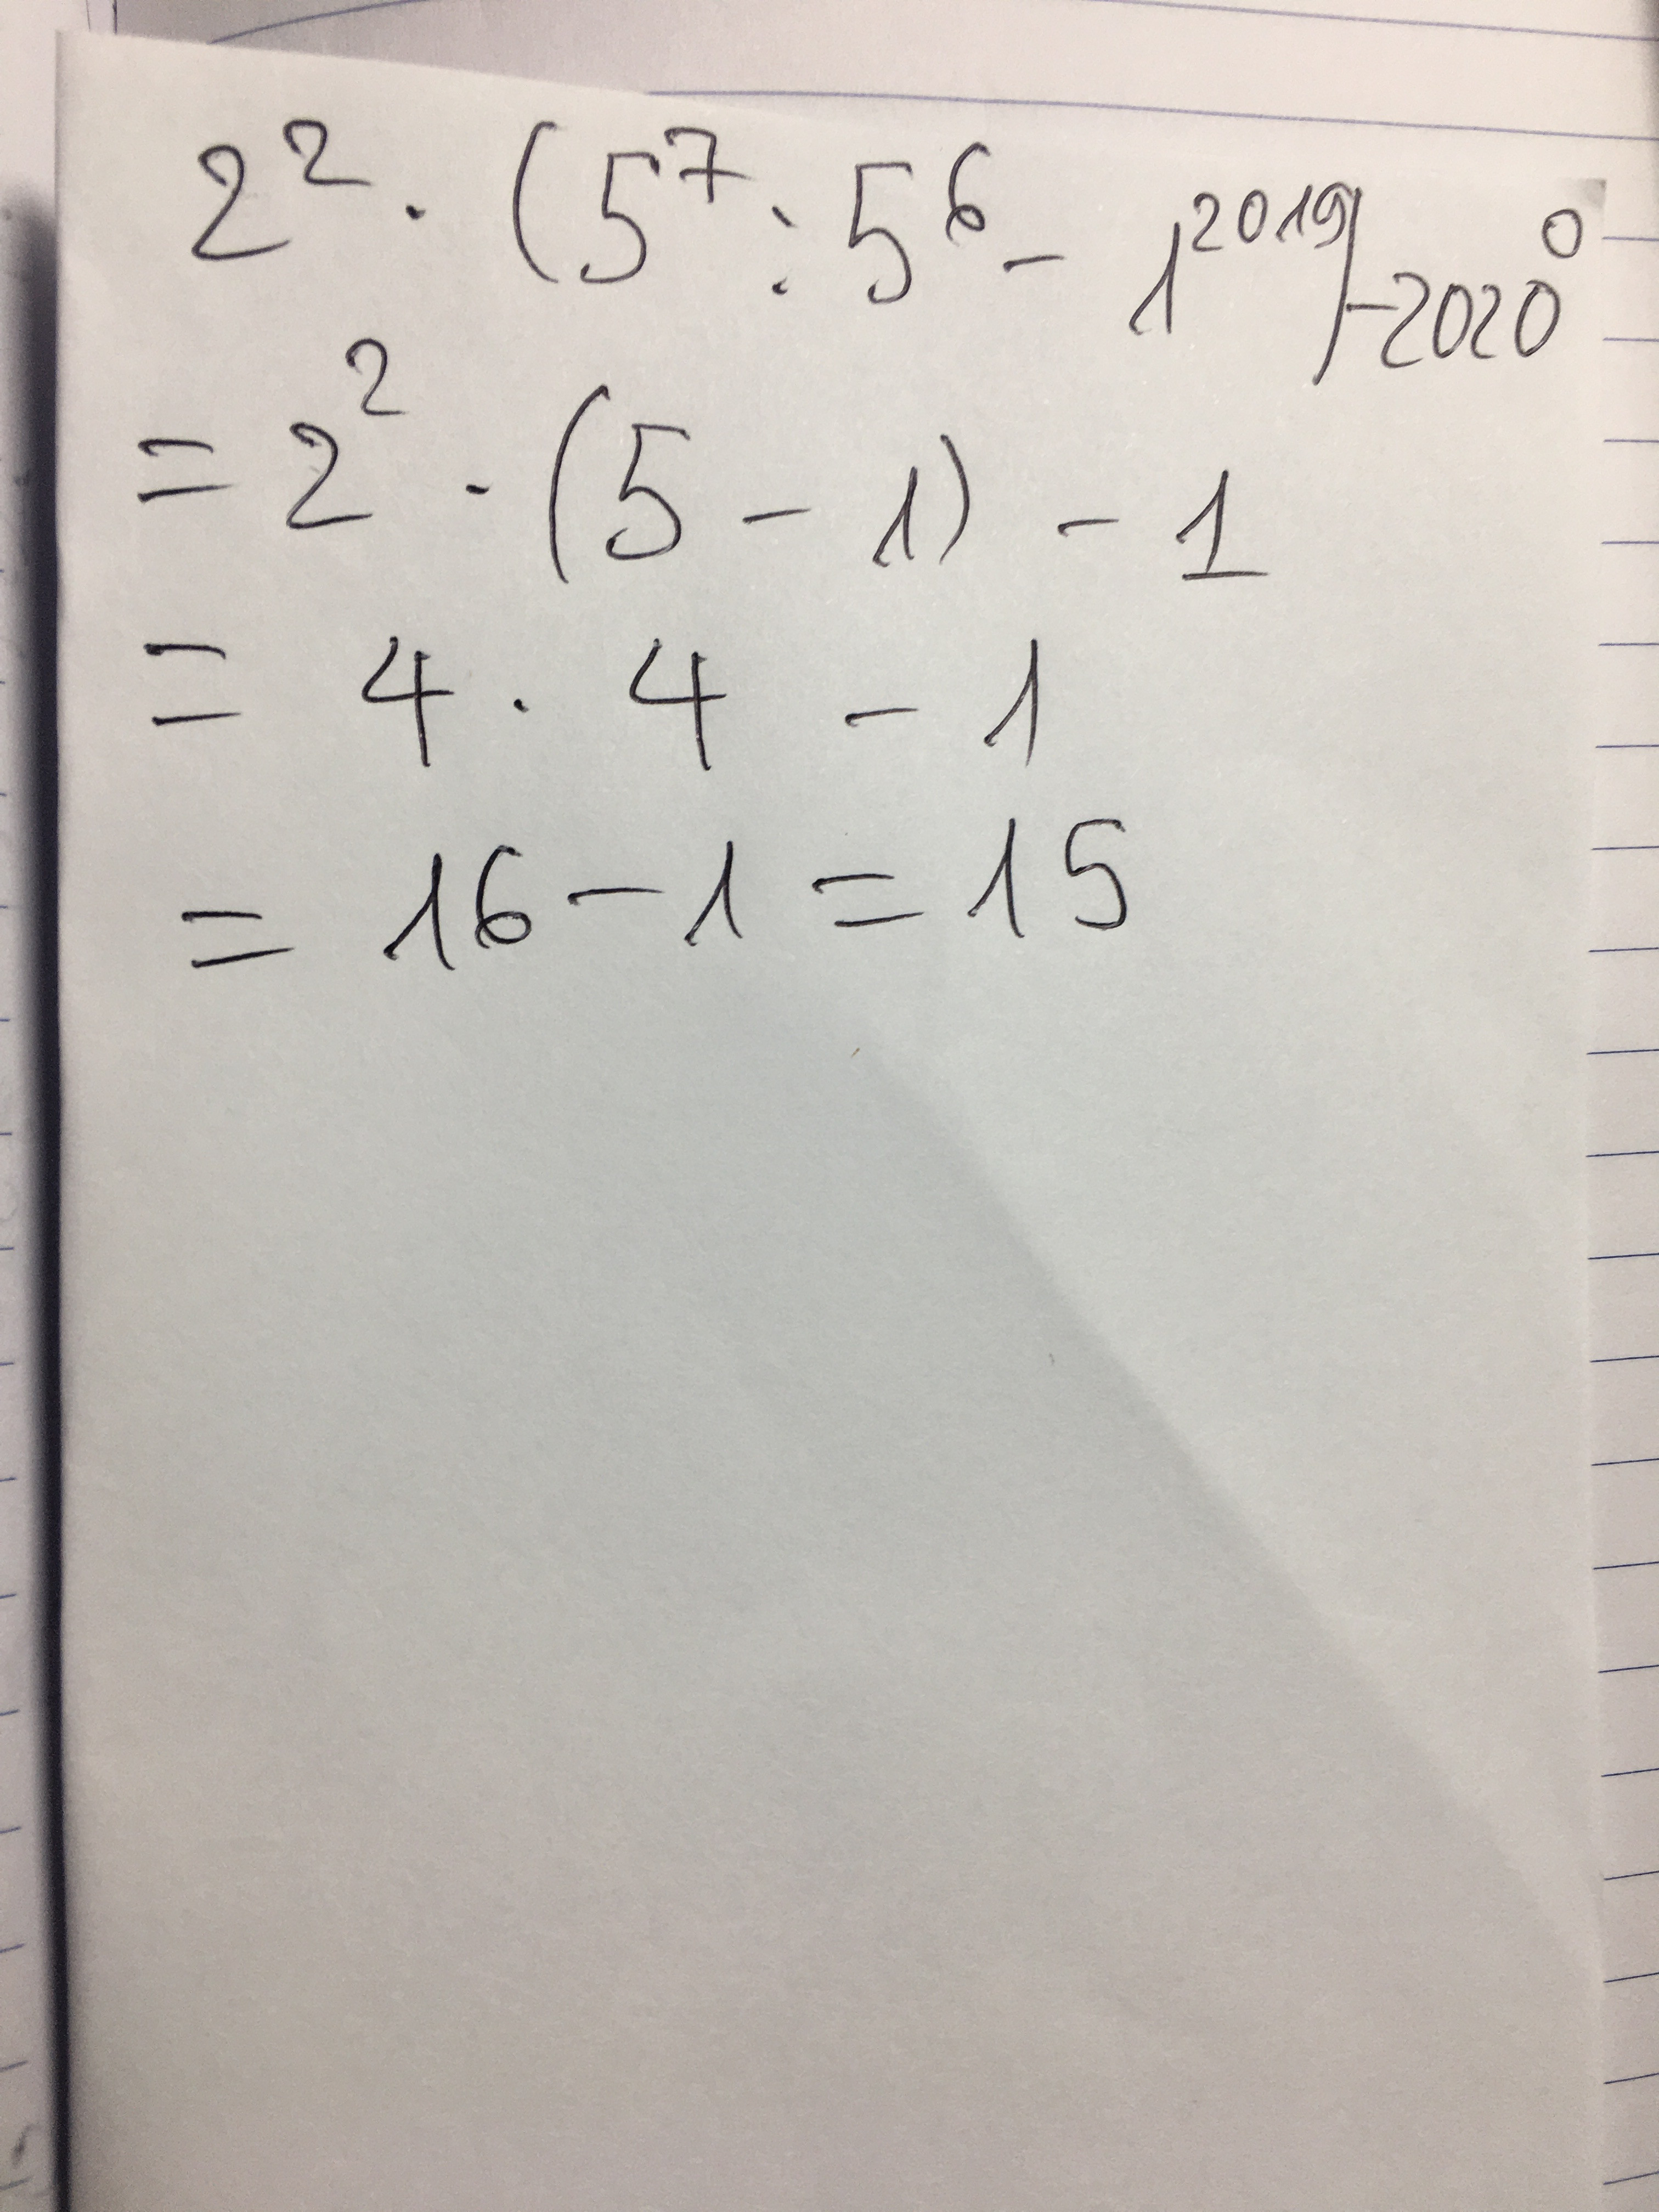 2² · (5⁷ : 5⁶ - 1²⁰¹⁹) - 2020⁰
= 2² · (5 - 1) - 1
= 4 · 4 - 1
= 16 - 1 = 15